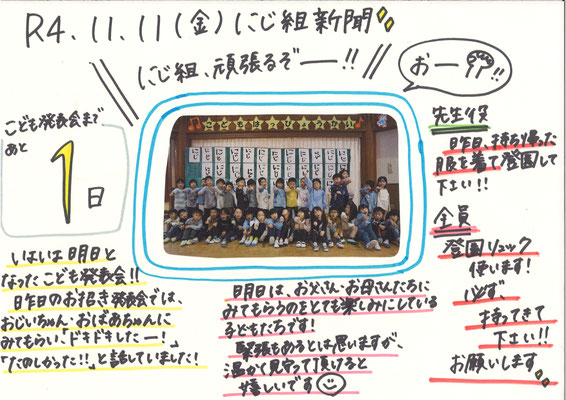 R4.11.11(金)にじ組新聞
にじ組、頑張るぞー!!
おー!!
こども発表会まで
あと
1
日
先生役
昨日、持ち帰った
服を着て登園して
下さい!!
全員
登園リュック
使います!
必ず、
持ってきて
下さい!!
お願いします
いよいよ明日と
なったこども発表会!!
昨日のお招き発表会では、
おじいちゃん・おばあちゃんに
みてもらい、「ドキドキしたー!」
「たのしかった!!」と話していました!
明日は、お父さん・お母さんたちに
みてもらうのをとても楽しみにしている
子どもたちです!
緊張もあるとは思いますが、
温かく見守って頂けると
嬉しいです